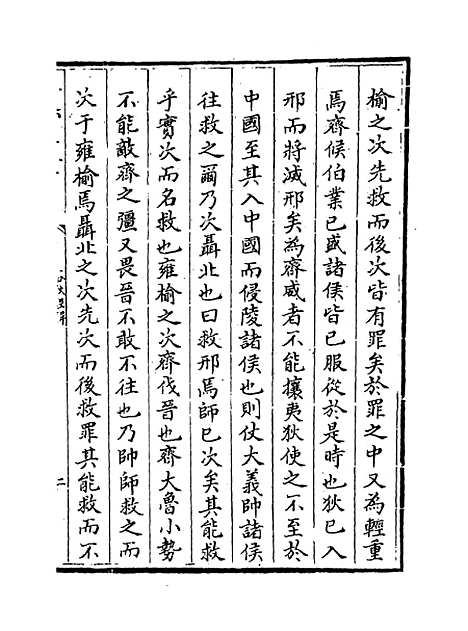 榆之次先救而後次皆有罪矣於罪之中又為輕重
焉齊侯伯業已盛諸侯皆已服從於是時也狄已入
邢而將滅邢矣為齊威者不能攘夷狄使之不至於
中國至其入中國而侵陵諸侯也則仗大義帥諸侯
往救之爾乃次聶北也曰救邢焉師已次矣其能救
乎實次而名救也雍榆之次齊伐晉也齊大魯小勢
不能敵齊之彊又畏晉不敢不往也乃帥師救之而
次于雍榆焉聶北之次先次而後救罪其能救而不
二